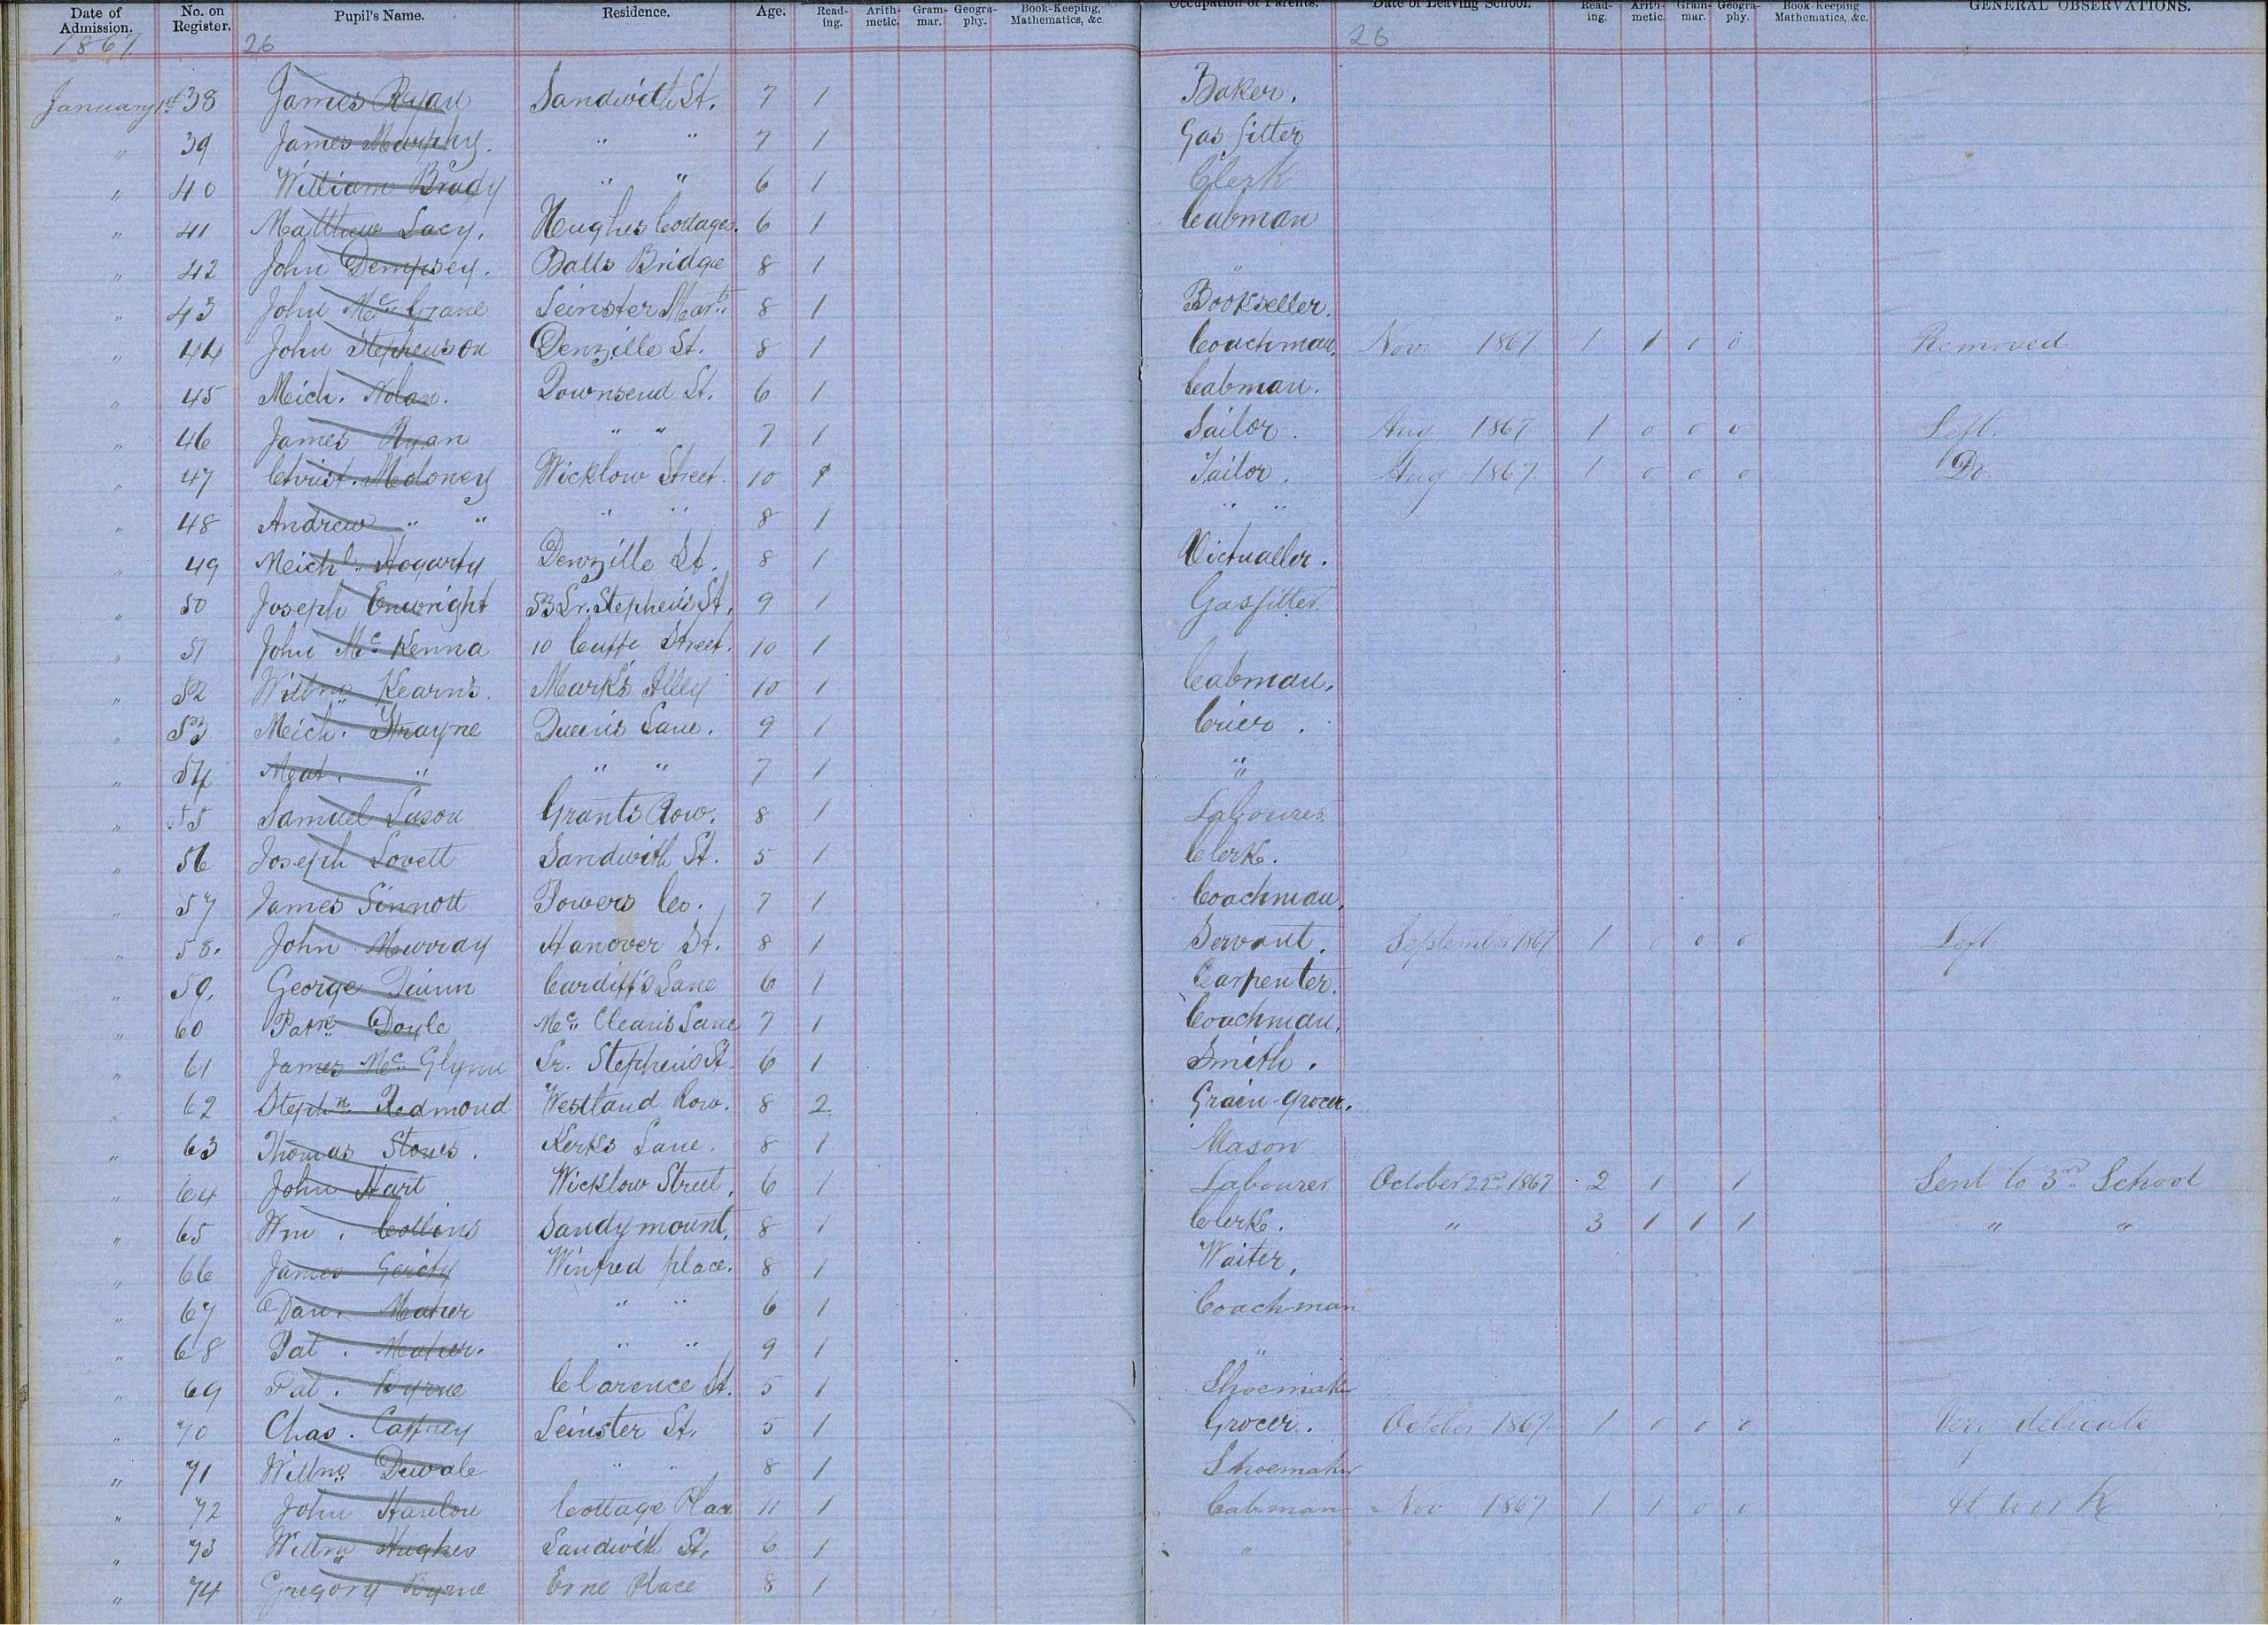 Date of Admission. No. on Register. Pupil's Name. Residence. Age. Read-ing. Arith-metic. Gram-mar. Geogra-phy. Book-Keeping, Mathematics, &c. Occupation of Parents. Date of Leaving School. Read-ing. Arith-metic. Gram-mar. Geogra-phy. Book-Keeping Mathematics, &c. GENERAL OBSERVATIONS.
1867 26 26
January 1st 38 James Ryan Sandwith St. 7 1 Baker.
" 39 James Murphy. " " 7 1 Gas fitter
" 40 William Brady " " 6 1 Clerk
" 41 Matthew Lacy. Hughes Cottages. 6 1 Cabman
" 42 John Dempsey. Balls Bridge 8 1 "
" 43 John Mc Grane Leinster Mar 8 1 Bookseller.
" 44 John Stephenson Denzille St. 8 1 Coachman. Nov 1867 1 1 1 0 Removed
" 45 Mich. Nolan. Townsend St. 6 1 Cabman.
" 46 James Ryan " " 7 1 Sailor. Aug 1867 1 0 0 0 Left.
" 47 Christ. Moloney Wicklow Street. 10 1 Tailor. Aug 1867 1 0 0 0 Do.
" 48 Andrew " " " " 8 1 " "
" 49 Michl. Hogarty Denzille St. 8 1 Victualler.
" 50 Joseph Enwright 53 Lr. Stephen's St. 9 1 Gasfitter.
" 51 John Mc Kenna 10 Cuffe Street. 10 1
" 52 Willm. Kearns. Mark's Alley 10 1 Cabman.
" 53 Mich. Strayne Queen's Lane. 9 1 Crier.
" 54 Mat. " " " 7 1 "
" 55 Samuel Sason Grants Row. 8 1 Labourer.
" 56 Joseph Lovett Sandwith St. 5 1 Clerk.
" 57 James Sinnott Powers Co. 7 1 Coachman.
" 58. John Murray Hanover St. 8 1 Servant. September 1867 1 0 0 0 Left
" 59. George Quinn Cardiff's Lane 6 1 Carpenter.
" 60 Patk. Doyle Mc. Clean's Lane 7 1 Coachman.
" 61 James Mc Glynn Lr. Stephen's St. 6 1 Smith.
" 62 Stephn Redmond Westland Row. 8 2 Grain grocer.
" 63 Thomas Stones. Kerks Lane. 8 1 Mason
" 64 John Hart Wicklow Street. 6 1 Labourer October 22nd 1867 2 1 1 Sent to 3rd School
" 65 Wm. Collins Sandymount. 8 1 Clerk. " 3 1 1 1 " "
" 66 James Gerity Winfred place. 8 1 Waiter,
" 67 Dan. Maher " " 6 1 Coachman
" 68 Pat. Maher. " " 9 1 "
" 69 Pat. Byrne Clarence St. 5 1 Shoemaker
" 70 Chas. Caffrey Leinster St. 5 1 Grocer. October 1867 1 0 0 0 Very delicate
" 71 Willm. Duvale " " 8 1 Shoemaker
" 72 John Hanlon Cottage Place 11 1 Cabman Nov 1867 1 1 0 0 At work
" 73 Willm Hughes Sandwith St. 6 1 "
" 74 Gregory Byrne Erne Place 8 1